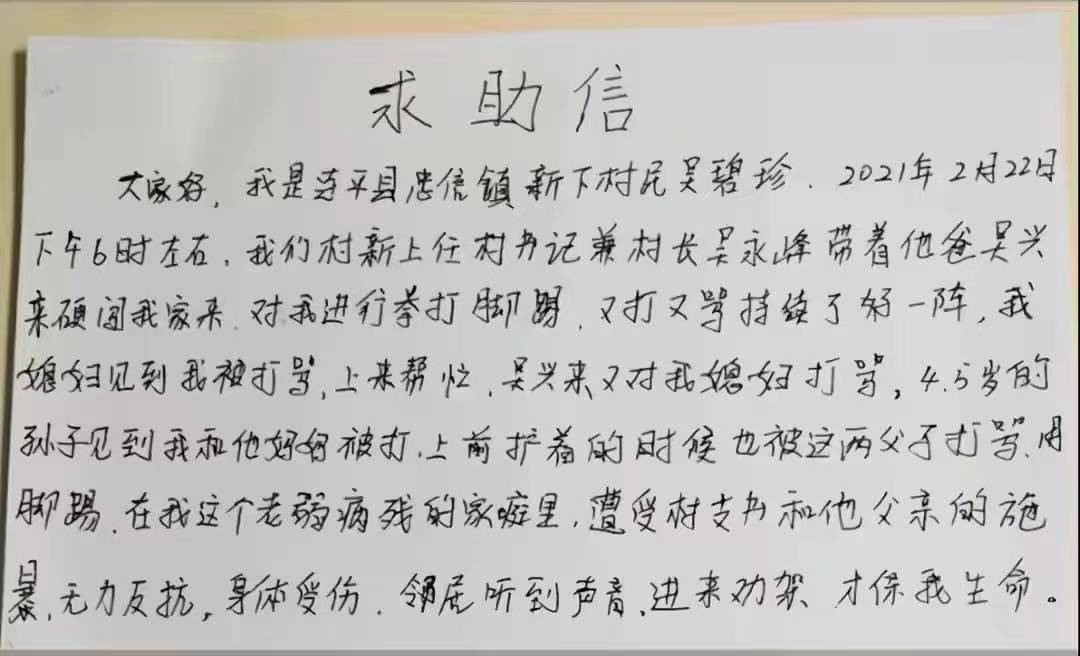 求助信
大家好，我是连平县忠信镇新下村民吴碧珍．2021年2月22日
下午6时左右，我们村新上任村书记兼村长吴永峰带着他爸吴兴
来硕闯我家来．对我进行拳打脚踢．又打又骂持续了好一阵，我
媳妇见到我被打骂，上来帮忙，吴兴来又对我媳妇打骂，4.5岁的
孙子见到我和他妈妈被打．上前护着的时候也被这两父子打骂．用
脚踢．在我这个老弱病残的家庭里，遭受村支书和他父亲的施
暴，无力反抗，身体受伤．邻居听到声音，进来劝架．才保我生命。